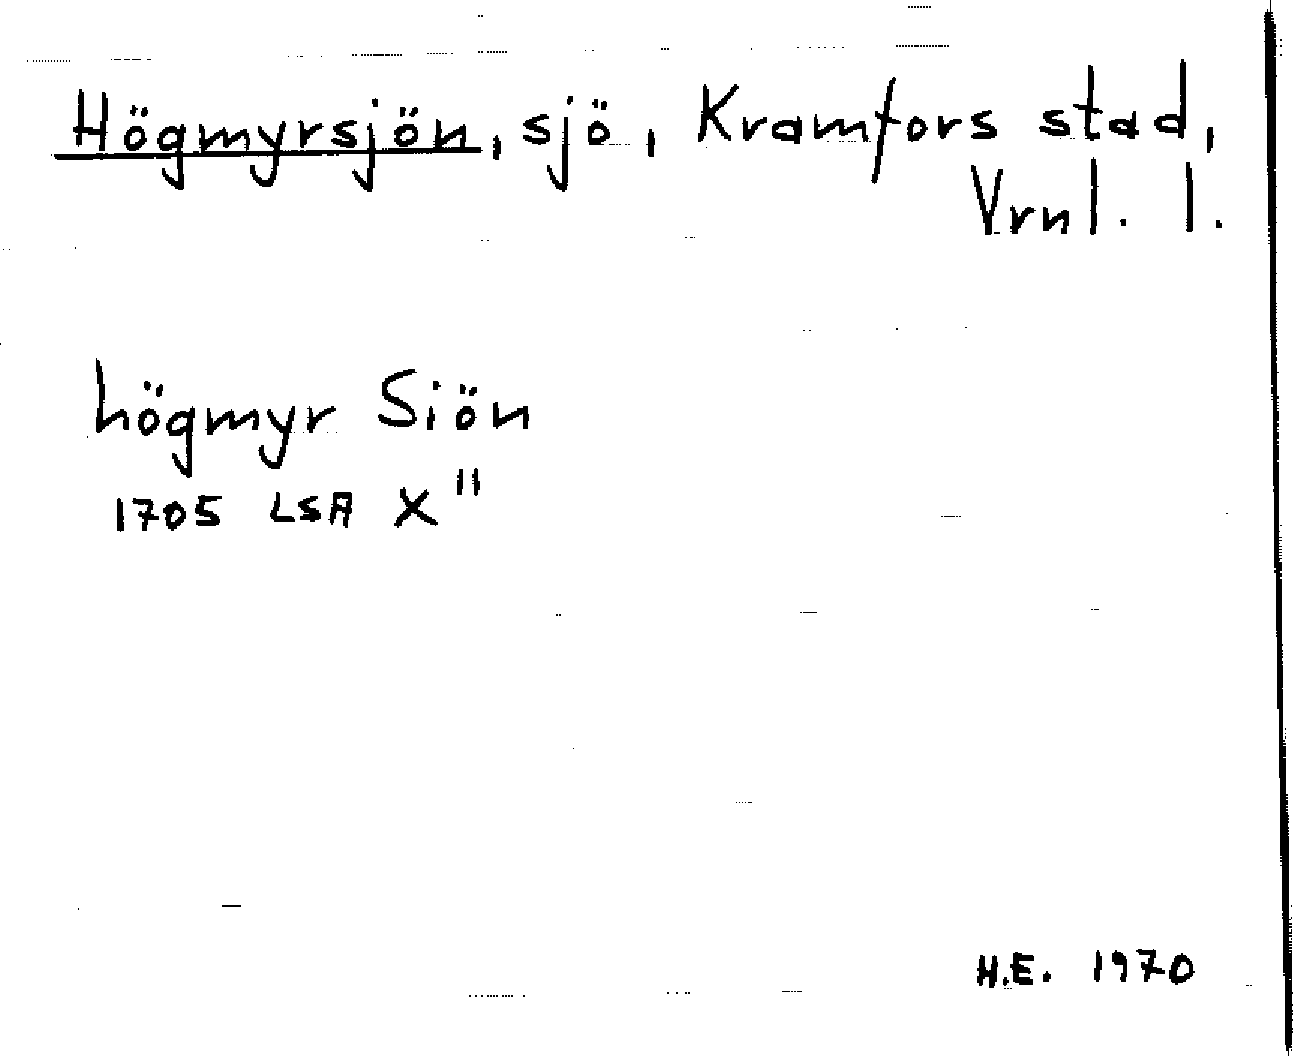 Högmyrsjön, sjö, Kramfors stad,
Vrnl. l.
högmyr Siön
1705 LSA X"
H.E. 1970